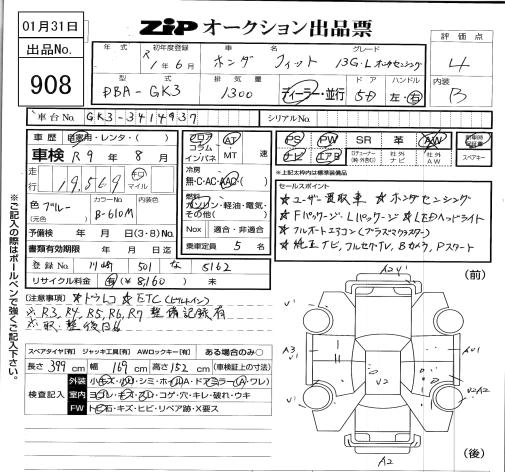 01月31日
出品No.
908
ZIP オークション出品票
年式 初年度登録 車名 グレード
R 1年6月 ホンダ フィット 13G・L ホンダセンシング
型式 排気量 ドア ハンドル
DBA-GK3 1300 ディーラー・並行 5D 左・右
評価点
4
内装
B
車台No. GK3-3414937 シリアルNo.
車歴 自家用・レンタ・( )
車検 R9年8月
走行 19,569 km マイル
色 ブルー (元色) カラーNo. B-610M 内装色
予備検 年 月 日(3・8)No.
書類有効期限 年 月 日
登録No. 川崎 501 な 5162
リサイクル料金 有(¥8,160) 未
フロア コラム インパネ
AT MT 速
冷房 無・C・AC・AAC・( )
燃料 ガソリン・軽油・電気・その他( )
Nox 適合・非適合
乗車定員 5 名
PS PW SR 革 AW
ナビ エアB ロデューナー(純・社外) 社外ナビ 社外AW
スペアキー
*上記太枠内は標準装備品
セールスポイント
★ユーザー買取車 ★ホンダセンシング
★Fパッケージ・Lパッケージ★LEDヘッドライト
★フルオートエアコン(プラズマクラスター)
★純正ナビ,フルセグTV,Bカメラ,Pスタート
【注意事項】★ドラレコ★ETC(ビルトイン)
※R3,R4,R5,R6,R7 整備記録有
※取,整後日
スペアタイヤ【有】 ジャッキ工具【有】 AWロックキー【有】 ある場合のみ○
長さ 399 cm 幅 169 cm 高さ 152 cm (車検証上の寸法)
検査記入
外装 小キズ・小凹・シミ・ホイル(A)・ドアミラー(A・ワレ)
室内 ヨゴレ・キズ・スレ・コゲ・穴・キレ・破れ・ウキ
FW トビ石・キズ・ヒビ・リペア跡・X要ス
※ご記入の際はボールペンで強くご記入下さい。
(前)
A2 V1
V1 V1
A3 V1 V2 AV1
V2 V2A2
A2
(後)